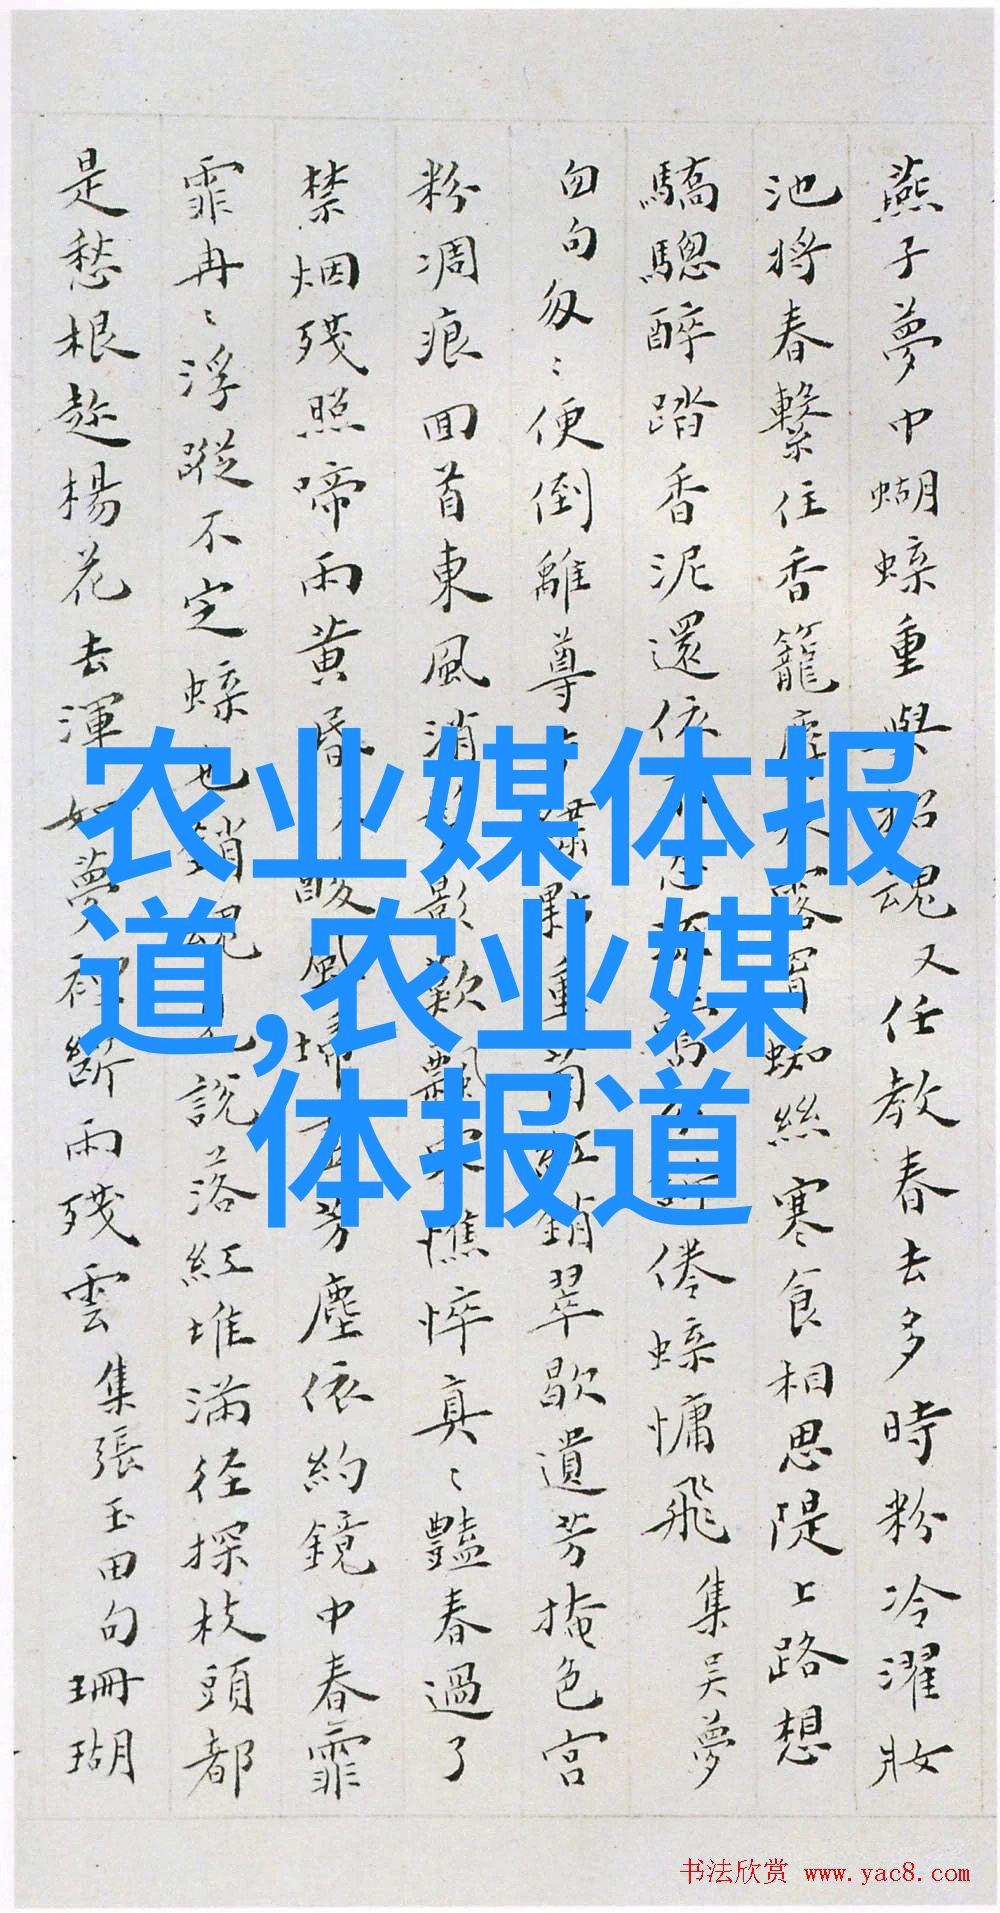 燕子夢中蝴蝶重與招魂又任教春去多時粉冷濯妝
池將春繫住香籠塵露罥蜘絲寒食相思隄上路想
驕驄醉踏香泥還依倦蝶慵飛 集吳夢
句匆〻便倒離尊重銷翠歇遺芳掩色宮
粉凋痕回首東風消影歎飄憔悴真〻豔春過了
禁烟殘照啼雨黄昏酸風芳塵依約鏡中春霏
霏冉〻浮蹤不定蝶也銷魂說落紅堆滿徑探枝頭都
是愁根趂楊花去渾如夢裡斷雨殘雲 集張玉田句珊瑚
农业媒体报
道,农业媒
体报道
书法欣赏 www.yac8.com